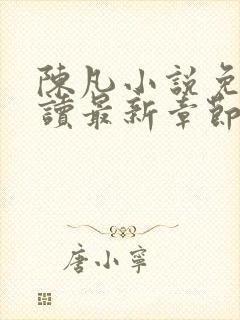 陳凡小說免
讀最新章節
唐小寧